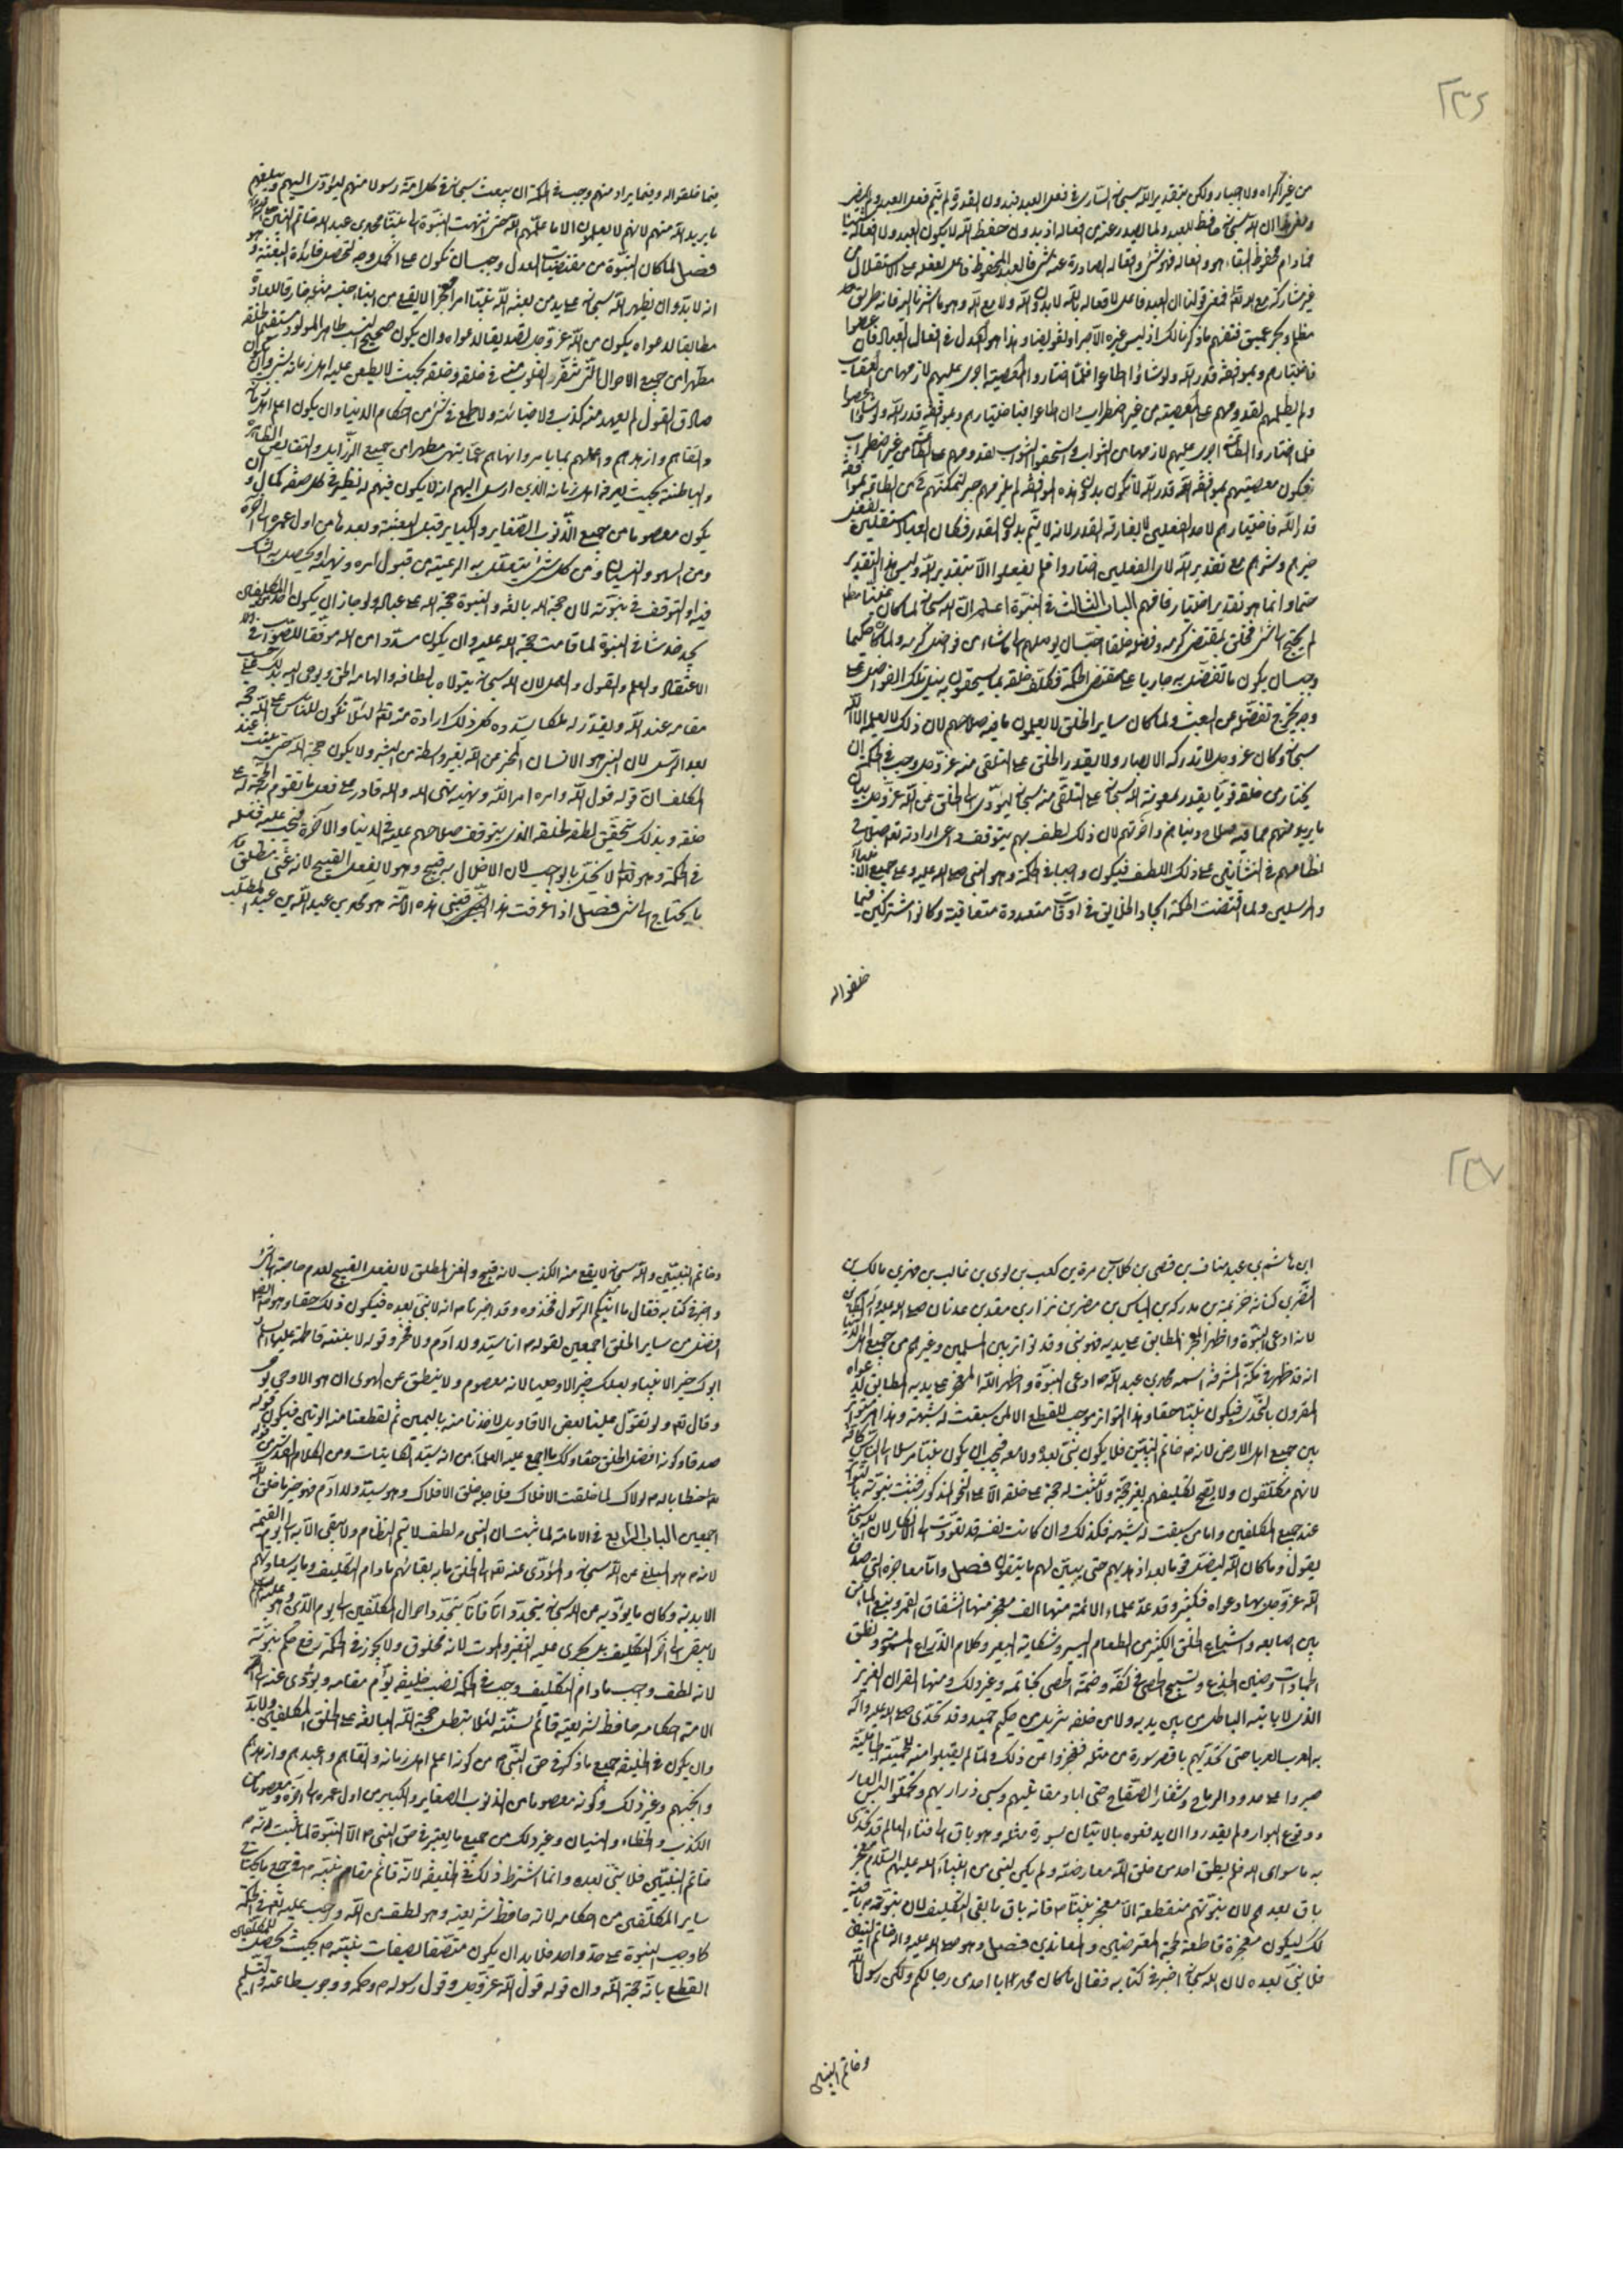 ٢٣٦
من غير اكراه ولا اجبار ولكن بتقدير الله سبحانه الساري في فعل العبد فبدون القدر لم يتم فعل العبد ولم
ان الله سبحانه حافظ للعبد ولما يصدر عنه من افعاله اذ بدون حفظ الله لا يكون العبد ولا افعاله شيئا
فما دام محفوظ البقاء هو وافعاله فهو شئ وافعاله الصادرة عنه شئ فالعبد المحفوظ فاعل لفعله على الاستقلال من
غير مشاركة مع الله تعالى فمعنى قولنا ان العبد فاعل لافعاله بالله لا بدون الله ولا مع الله وهو ما اشرنا اليه فانه طريق
مظلم وبحر عميق فتفهم ما ذكرنا لك اذ ليس غيره الا جبرا او تفويضا وهذا هو العدل في افعال العباد فان عصوا
فباختيارهم وبموافقة قدر الله ولو شاؤا اطاعوا فلما اختاروا المعصية اجرى عليهم لازمها من العقاب
ولم يظلمهم لقدومهم على المعصية من غير اضطرار وان اطاعوا فباختيارهم وبموافقة قدر الله ولو شاؤا عصوا
فلما اختاروا الطاعة اجرى عليهم لازمها من الثواب فاستحقوا الثواب لقدومهم على الطاعة من غير اضطرار
فيكون معصيتهم بموافقة قدر الله لا تكون بدون هذه الموافقة لم يلزمهم جبر لتمكنهم من الطاعة بموافقة
قدر الله فاختيارهم لاحد الفعلين لا يفارقه القدر لانه لا يتم بدون القدر فكان العباد مستقلين بفعل
خيرهم وشرهم مع تقدير الله لان الفعلين اختاروا فلم يفعلوا الا بتقدير الله وليس هذا التقدير
حتما وانما هو تقدير اختيار فافهم الباب الثالث في النبوة اعلم ان الله سبحانه لما كان غنيا مطلقا
لم يحتج الى شئ فخلق بمقتضى كرمه وفضله خلقا احب ان يوصلهم الى ما شاء من فواضل كرمه ولما كان حكيما
وجب ان يكون ما تفضل به جاريا على مقتضى الحكمة فكلف خلقه بما يستحقون به نيل تلك الفواضل على
وجه يخرج تفضله عن العبث ولما كان ساير الخلق لا يعلمون ما فيه صلاحهم لان ذلك لا يعلمه الا الله
سبحانه وكان عز وجل لا تدركه الابصار ولا يقدر الخلق على التلقى منه عز وجل وجب في الحكمة ان
يختار من خلقه قويا يقدر بمعونة الله سبحانه على التلقى منه سبحانه ليؤدى الى الخلق عن الله عز وجل بيان
ما يريد منهم مما فيه صلاح دنياهم واخرتهم لان ذلك لطف بهم يتوقف على ارادته تعالى صلاح
نظامهم في النشأتين على ذلك اللطف فيكون واجبا في الحكمة وهو النبي صلى الله عليه وعلى جميع الانبياء
والمرسلين ولما اقتضت الحكمة ايجاد الخلايق في اوقات متعددة متعاقبة وكانوا مشتركين فيما
خلقوا له
فيما خلقوا له وفيما يراد منهم وجب في الحكمة ان يبعث سبحانه في كل امة رسولا منهم ليؤدى اليهم ويبلغهم
ما يريد الله منهم لانهم لا يعلمون الا ما علمهم الله حتى انتهت النبوة الى نبينا محمد بن عبد الله خاتم النبيين
فصل لما كان النبوة من مقتضيات العدل وجب ان تكون على اكمل وجه لتحصل فائدة البعثة وهو
انه لا بد وان يظهر الله سبحانه على يد من بعثه الله نبيا امرا معجزا لا يقع من ابناء جنسه مثله خارقا للعادة
مطابقا لدعواه يكون من الله عز وجل تصديقا لدعواه وان يكون صحيح النسب طاهر المولد مستقيم الخلقة
مطهرا من جميع الاحوال التي تنفر القلوب منه في خلقه وخلقه بحيث لا يطعن عليه اهل زمانه بشئ وان
صادق القول لم يعهد منه كذب ولا خيانة ولا طمع في شئ من احكام الدنيا وان يكون اعلم اهل زمانه
واتقاهم وازهدهم واعملهم بما يأمر وانهاهم عما ينهى مطهرا من جميع الرذايل والنقايص الظاهرة
والباطنة بحيث يعرفه اهل زمانه الذين ارسل اليهم انه لا يكون فيهم له نظير في كل صفة كمال وان
يكون معصوما من جميع الذنوب الصغاير والكباير قبل البعثة وبعدها من اول عمره الى آخره
ومن السهو والنسيان ومن كل شئ يتعلق به الرعية من قبول امره ونهيه او يحصل به الشك
فيه او التوقف في نبوته لان حجة الله بالغة والنبوة حجة الله على عباده ولو جاز ان يكون للمكلفين
يجد خدشا في النبوة لما قامت حجة الله عليه وان يكون مسددا من الله موفقا للصواب في
الاعتقاد والعلم والقول والعمل لان الله سبحانه يتولاه بالطافه والهامه الحق ويوحى اليه بذلك على حسب
مقامه عند الله ويقدر له ملكا يسدده كل ذلك ارادة منه تعالى لئلا تكون للناس على الله حجة
بعد الرسل لان النبي هو الانسان المخبر عن الله بغير واسطة من البشر ولا يكون حجة الله حتى يثبت عند
المكلف ان قوله قول الله وامره امر الله ونهيه نهى الله والله قادر على فعل ما تقوم به الحجة له على
خلقه وبذلك يتحقق لطفه لخلقه الذي يتوقف صلاحهم عليه في الدنيا والاخرة فيجب عليه فعله
في الحكمة وهو تعالى لا يخل بالواجب لان الاخلال به قبيح وهو لا يفعل القبيح لانه غنى مطلق فلا
يحتاج الى شئ فصل اذا عرفت هذا فنبي هذه الامة هو محمد بن عبد الله بن عبد المطلب
٢٣٧
ابن هاشم بن عبد مناف بن قصى بن كلاب بن مرة بن كعب بن لوى بن غالب بن فهر بن مالك بن
النضر بن كنانة بن خزيمة بن مدركة بن الياس بن مضر بن نزار بن معد بن عدنان صلى الله عليه وآله
لانه ادعى النبوة واظهر المعجز المطابق على يديه فهو نبي وقد تواتر بين المسلمين وغيرهم من جميع اهل الدنيا
انه قد ظهر في مكة المشرفة اسمه محمد بن عبد الله ص ادعى النبوة واظهر الله المعجز على يديه المطابق لدعواه
المقرون بالتحدى فيكون نبيا حقا وهذا التواتر موجب للقطع الا لمن سبقت له شبهة وهذا امر متواتر
بين جميع اهل الارض لانه ص خاتم النبيين فلا يكون نبي بعده ولا معه فيجب ان يكون نبيا مرسلا الى الناس كافة
لانهم مكلفون ولا يصح تكليفهم بغير حجة ولا تثبت له حجة على خلقه الا على النحو المذكور فثبت نبوته
عند جميع المكلفين واما من سبقت له شبهة فكذلك وان كانت نفسه قد تعودت الى الانكار لان الله سبحانه
يقول وما كان الله ليضل قوما بعد اذ هديهم حتى يبين لهم ما يتقون فصل واما معاجزه التي صدق
الله عز وجل بها دعواه فكثيرة وقد عد علماء الائمة منها الف معجز منها انشقاق القمر ونبع الماء من
بين اصابعه واشباع الخلق الكثير من الطعام اليسير وشكاية البعير وكلام الذراع المسمومة ونطق
الجمادات وحنين الجذع وتسبيح الحصى في كفه وختمه الحصى بخاتمه وغير ذلك ومنها القران العزيز
الذي لا يأتيه الباطل من بين يديه ولا من خلفه تنزيل من حكيم حميد وقد تحدى صلى الله عليه وآله
به العرب العربا حتى تحديهم باقصر سورة من مثله فعجزوا عن ذلك ولما لم يقبلوا منه للحمية الجاهلية
صبروا على حدود الرماح وشفار الصفاح حتى اباد مقاتليهم وسبى ذراريهم وتحملوا لبس العار
ووقوع البوار ولم يقدروا ان يدفعوه بالاتيان بسورة مثله وهو باق الى فناء العالم قد تحدى
به ما سوى الله فلم يطق احد من خلق الله معارضته ولم يكن لنبي من انبياء الله عليهم السلم معجز
باق بعدهم لان نبوتهم منقطعة الا معجز نبينا ص فانه باق ما بقى التكليف لان نبوته باقية
كذلك ليكون معجزة قاطعة لحجة المعترضين والمعاندين فصل وهو صلى الله عليه وآله خاتم النبيين
فلا نبي بعده لان الله سبحانه اخبر في كتابه فقال ما كان محمد ابا احد من رجالكم ولكن رسول الله
وخاتم النبيين
وخاتم النبيين والله سبحانه لا يقع منه الكذب لانه قبيح والغنى المطلق لا يفعل القبيح لعدم حاجته الى شئ
واخبر في كتابه فقال ما اتيكم الرسول فخذوه وقد اخبرنا ص انه لا نبي بعده فيكون ذلك حقا وهو ص
افضل من ساير الخلق اجمعين لقوله ص انا سيد ولد آدم ولا فخر وقوله لابنته فاطمة عليها السلم
ابوك خير الانبياء وبعلك خير الاوصياء لانه معصوم ولا ينطق عن الهوى ان هو الا وحي يوحى
وقال تعالى ولو تقول علينا بعض الاقاويل لاخذنا منه باليمين ثم لقطعنا منه الوتين فيكون قوله
صدقا وكونه افضل الخلق حقا وكذلك ما اجمع عليه العلماء من انه سيد الكاينات ومن الكلام القدسي قوله
تعالى خطابا له ص لولاك لما خلقت الافلاك فلاجله خلق الافلاك وهو سيد ولد آدم فهو خير ما خلق الله
اجمعين الباب الرابع في الامامة لما ثبت ان النبي ص لطف لا يتم النظام ولا يبقى الا به الى يوم القيمة
لانه ص هو المبلغ عن الله سبحانه والمؤدى عنه تعالى الى الخلق ما به بقائهم ما دام التكليف وما به سعادتهم
الابدية وكان ما يؤديه عن الله سبحانه يتجدد آنا فآنا بتجدد احوال المكلفين الى يوم الدين وهو عليه السلم
لا يبقى الى آخر التكليف بل يجرى عليه التغير والموت لانه مخلوق ولا يجوز في الحكمة رفع حكم نبوته
لانه لطف واجب ما دام التكليف وجب في الحكمة نصب خليفة يقوم مقامه ويؤدى عنه الى
الامة احكامه حافظ لشريعته قائم بسنته لئلا تبطل حجة الله البالغة على الخلق المكلفين ولا بد
وان يكون في الخليفة جميع ما ذكر في حق النبي ص من كونه اعلم اهل زمانه واتقاهم واعبدهم وازهدهم
وانجبهم وغير ذلك وكونه معصوما من الذنوب الصغاير والكباير من اول عمره الى آخره ومعصوما من
الكذب والخطاء والنسيان وغير ذلك من جميع ما يعتبر في حق النبي ص الا النبوة لما ثبت انه ص
خاتم النبيين فلا نبي بعده وانما اشترط ذلك في الخليفة لانه قائم مقام نبيه ص في جميع ما يحتاج
ساير المكلفين من احكامه لانه حافظ شريعته وهو لطف من الله واجب عليه تعالى في الحكمة
كما وجب النبوة على حد واحد فلا بد ان يكون متصفا بصفات نبيه ص بحيث يحصل للمكلفين
القطع بانه حجة الله وان قوله قول الله عز وجل وقول رسوله ص وحكمه ووجوب طاعته والتسليم